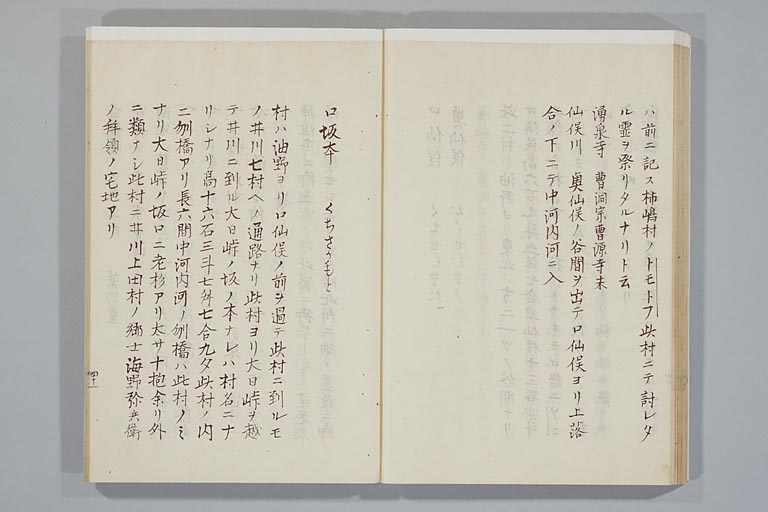 ハ前ニ記ス柿嶋村ノトモトフ此村ニテ討レタ
ル霊ヲ祭リタルナリト云
湧泉寺 曹洞宗曹源寺末
仙俣川ハ奥仙俣ノ谷間ヲ出テ口仙俣ヨリ上落
合ノ下ニテ中河内河ニ入
口坂本 くちさかもと
村ハ油野ヨリ口仙俣ノ前ヲ過テ此村ニ到ルモ
ノ井川七村ヘノ通路ナリ此村ヨリ大日峠ヲ越
テ井川ニ到ル大日峠ノ坂ノ本ナレハ村名ニナ
リシナリ高十六石三斗七舛七合九夕此村ノ内
ニ刎橋アリ長六間中河内河ノ刎橋ハ此村ノミ
ナリ大日峠ノ坂口ニ老杉アリ大サ十抱余リ外
ニ類ナシ此村ニ井川上田村ノ郷士海野弥兵衛
ノ拝領ノ宅地アリ
四十一